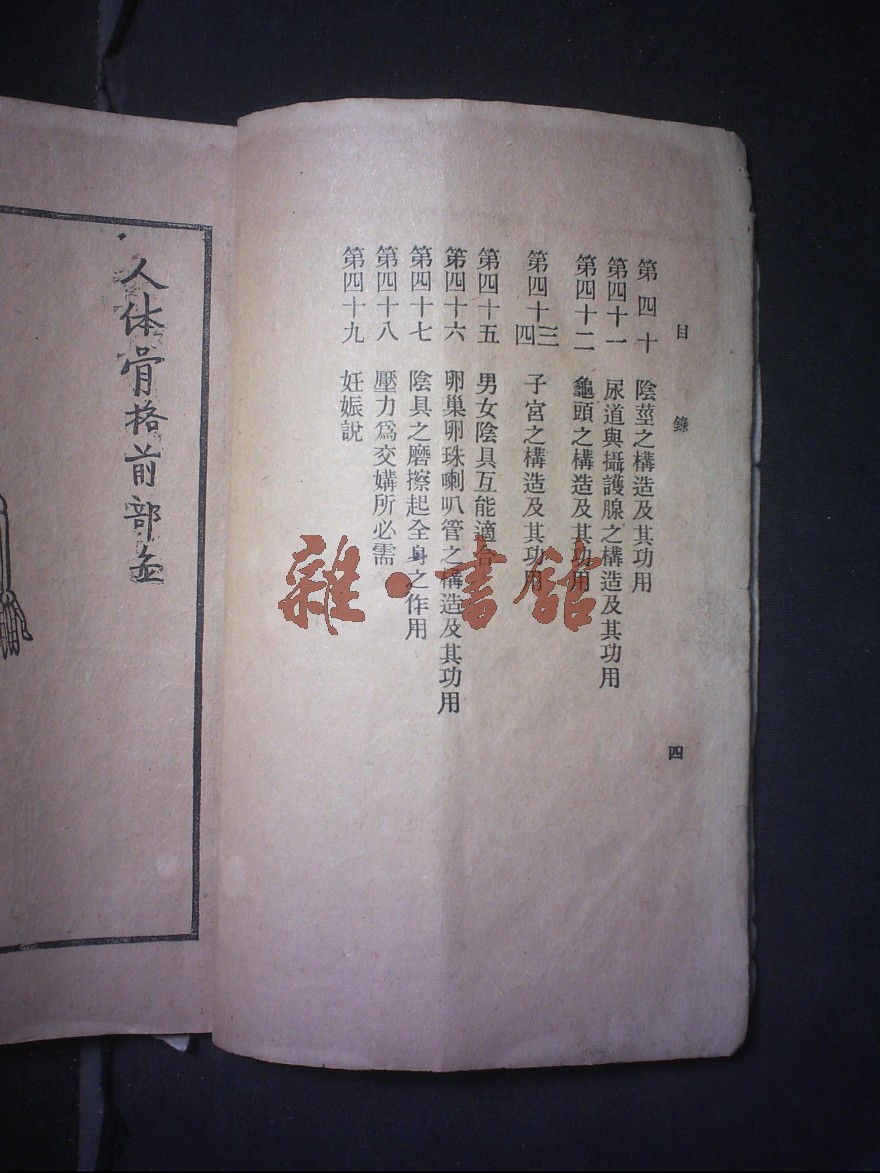 目錄
第四十 陰莖之構造及其功用
第四十一 尿道與攝護腺之構造及其功用
第四十二 龜頭之構造及其功用
第四十三四 子宮之構造及其功用
第四十五 男女陰具互能適合
第四十六 卵巢卵珠喇叭管之構造及其功用
第四十七 陰具之磨擦起全身之作用
第四十八 壓力爲交媾所必需
第四十九 妊娠說
四
人体骨格前部
雜·書館